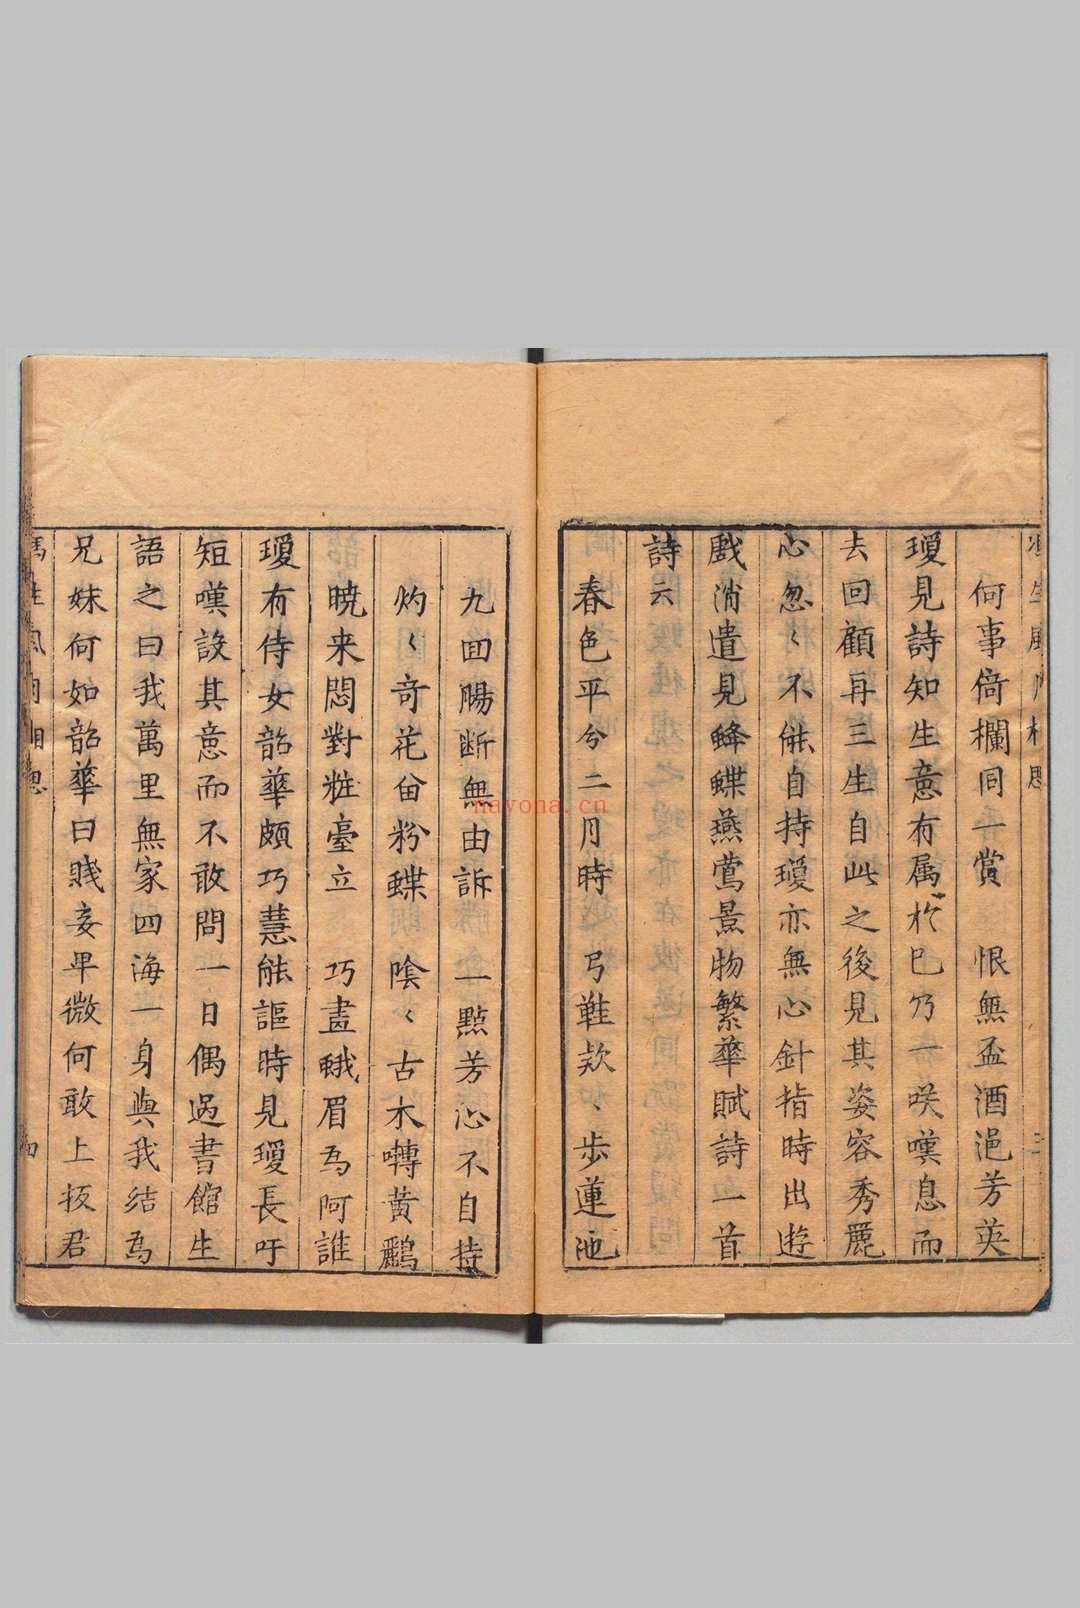 何事倚欄同一賞　恨無盃酒浥芳英
瓊見詩知生意有属扵巳乃一咲嘆息而
去回顧再三生自此之後見其姿容秀麗
心忽〻不能自持瓊亦無心針指時出遊
戲消遣見蜂蝶燕鶯景物繁華賦詩一首
詩云
春色平兮二月時　弓鞋款〻步蓮池
九囬腸断無由訴　一點芳心不自持
灼〻竒花畄粉蝶　陰〻古木囀黄鸝
曉来悶對粧臺立　巧畫蛾眉為阿誰
瓊有侍女韶華頗巧慧能謳時見瓊長吁
短嘆設其意而不敢問一日偶過書館生
語之曰我萬里無家四海一身與我结為
兄妹何如韶華曰賤妾卑微何敢上扳君
馮生風月相思
四
nayona.cn